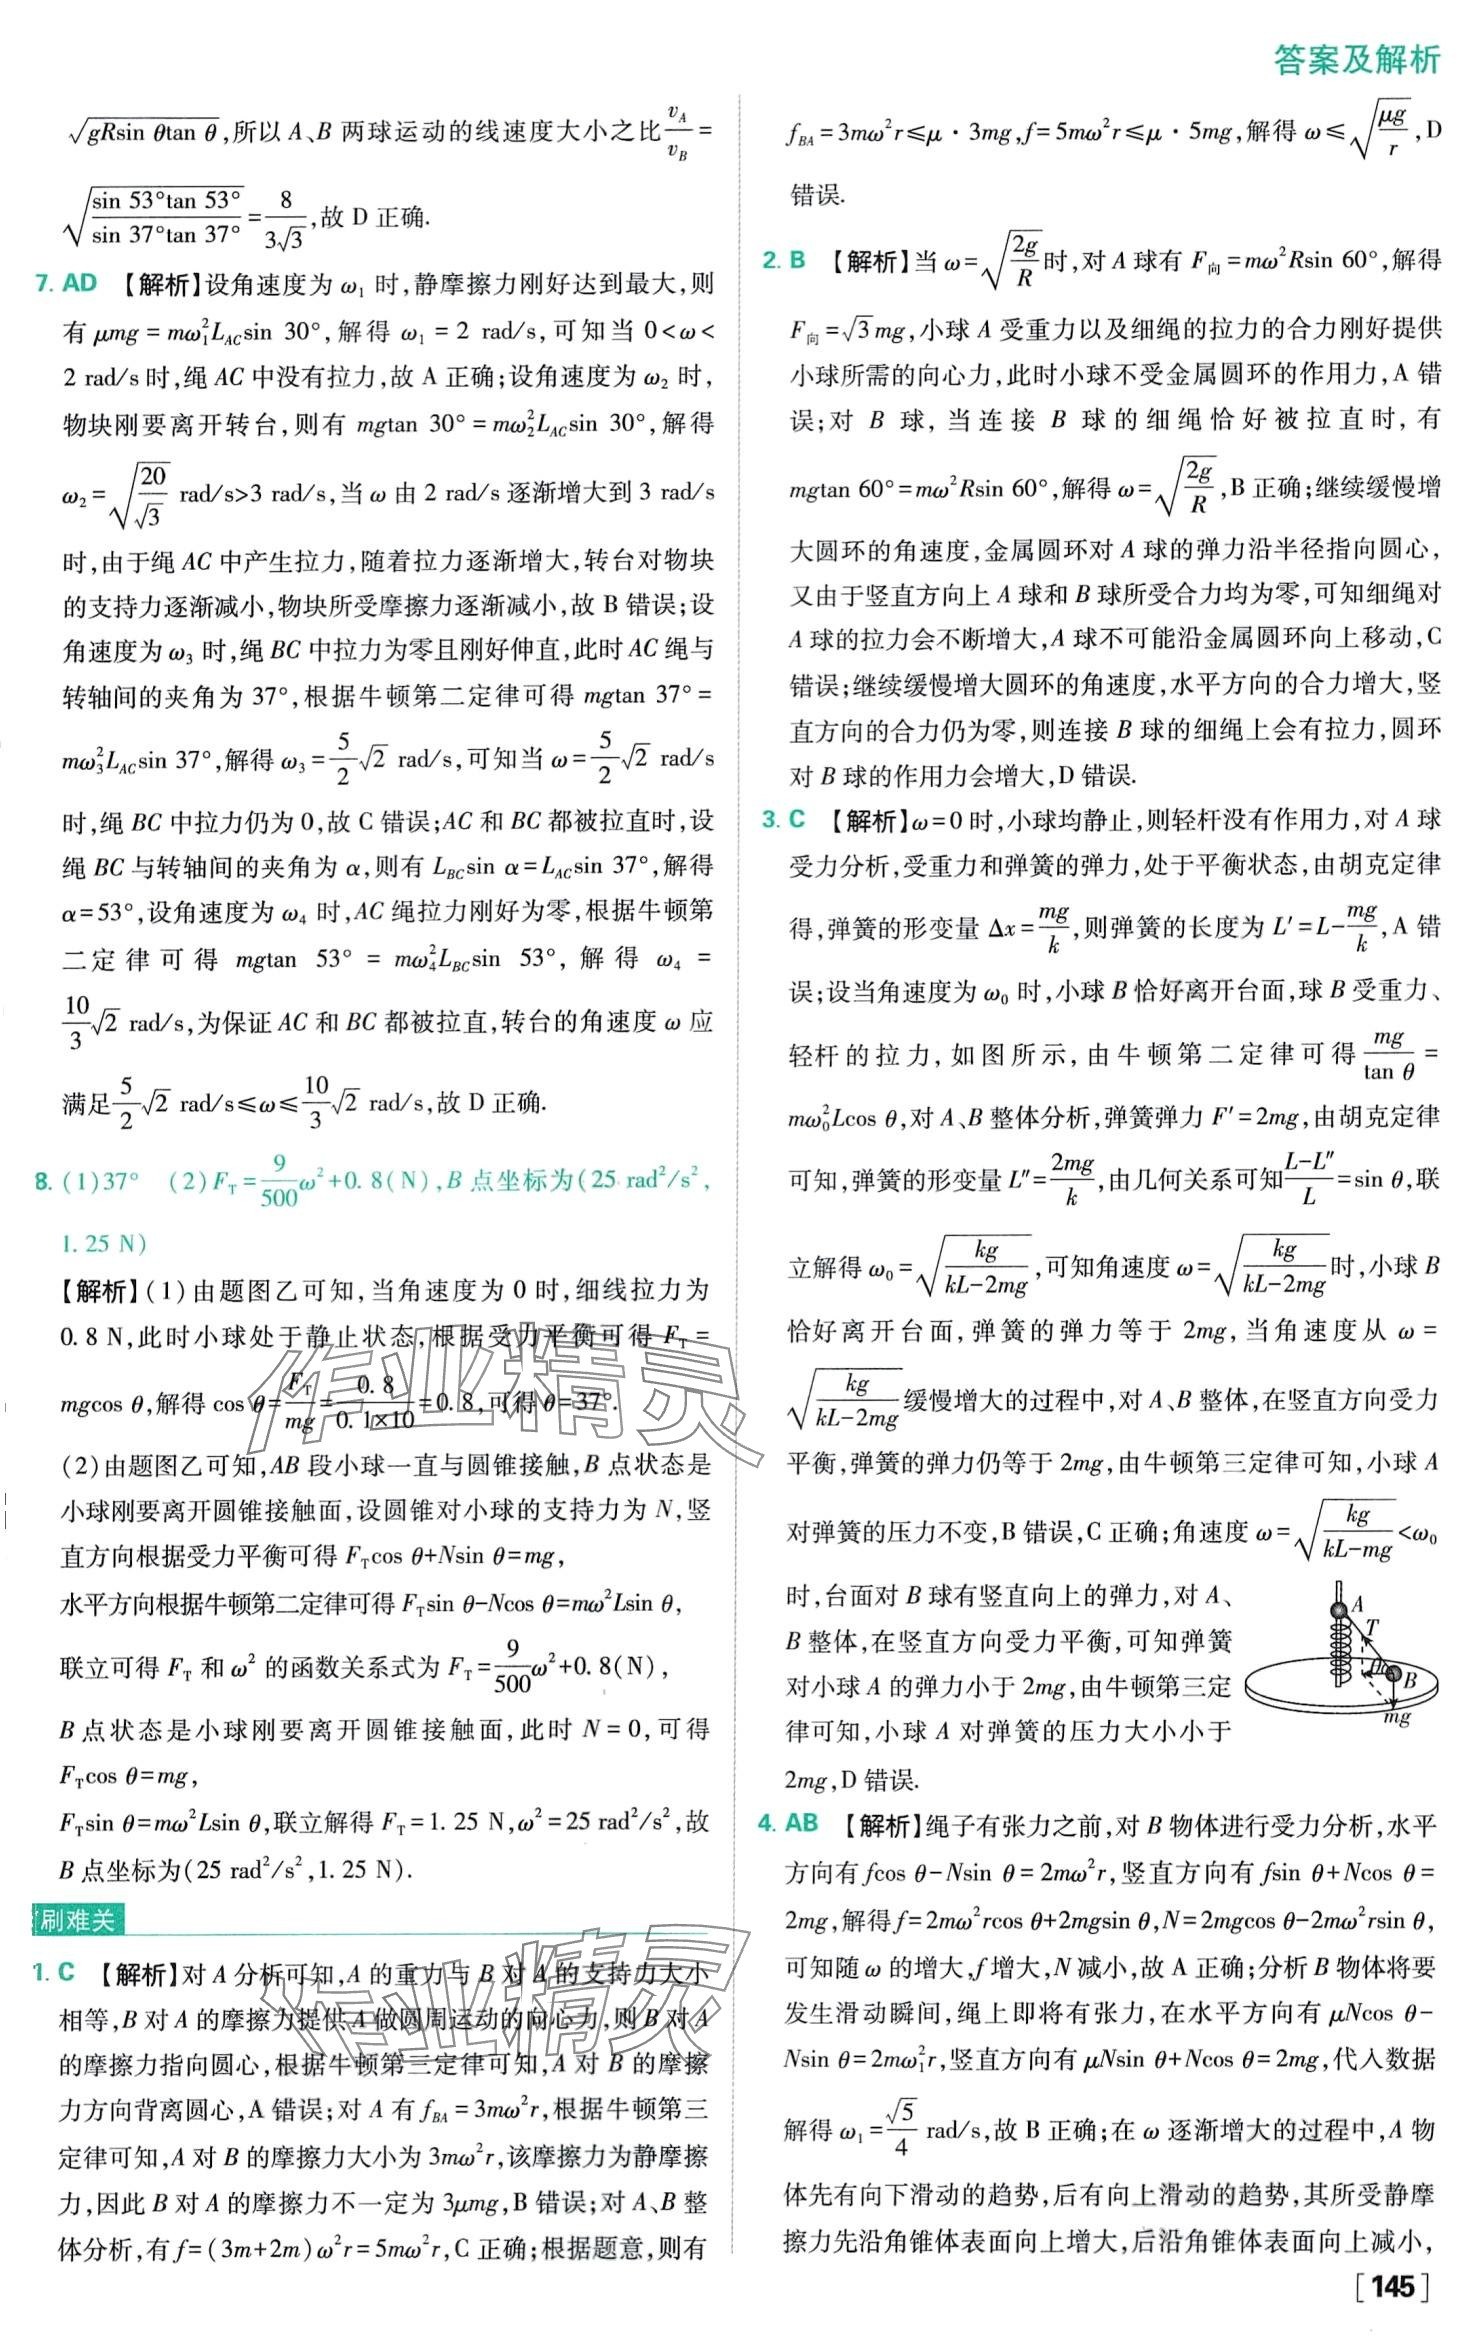 答案及解析
√(gRsin θtan θ),所以 A、B 两球运动的线速度大小之比 v_A/v_B =
√(sin 53°tan 53°/sin 37°tan 37°) = 8/(3√3),故 D 正确.
7. AD 【解析】设角速度为 ω₁ 时,静摩擦力刚好达到最大,则
有 μmg = mω₁²L_AC sin 30°,解得 ω₁ = 2 rad/s,可知当 0<ω<
2 rad/s 时,绳 AC 中没有拉力,故 A 正确;设角速度为 ω₂ 时,
物块刚要离开转台,则有 mgtan 30° = mω₂²L_AC sin 30°,解得
ω₂ = √(20/√3) rad/s>3 rad/s,当 ω 由 2 rad/s 逐渐增大到 3 rad/s
时,由于绳 AC 中产生拉力,随着拉力逐渐增大,转台对物块
的支持力逐渐减小,物块所受摩擦力逐渐减小,故 B 错误;设
角速度为 ω₃ 时,绳 BC 中拉力为零且刚好伸直,此时 AC 绳与
转轴间的夹角为 37°,根据牛顿第二定律可得 mgtan 37° =
mω₃²L_AC sin 37°,解得 ω₃ = 5/2 √2 rad/s,可知当 ω = 5/2 √2 rad/s
时,绳 BC 中拉力仍为 0,故 C 错误;AC 和 BC 都被拉直时,设
绳 BC 与转轴间的夹角为 α,则有 L_BC sin α = L_AC sin 37°,解得
α=53°,设角速度为 ω₄ 时,AC 绳拉力刚好为零,根据牛顿第
二定律可得 mgtan 53° = mω₄²L_BC sin 53°,解得 ω₄ =
10/3 √2 rad/s,为保证 AC 和 BC 都被拉直,转台的角速度 ω 应
满足 5/2 √2 rad/s≤ω≤ 10/3 √2 rad/s,故 D 正确.
8. (1)37° (2)F_T = 9/500 ω²+0.8(N),B 点坐标为(25 rad²/s²,
1.25 N)
【解析】(1)由题图乙可知,当角速度为 0 时,细线拉力为
0.8 N,此时小球处于静止状态,根据受力平衡可得 F_T =
mgcos θ,解得 cos θ = F_T/mg = 0.8/(0.1×10) = 0.8,可得 θ=37°.
(2)由题图乙可知,AB 段小球一直与圆锥接触,B 点状态是
小球刚要离开圆锥接触面,设圆锥对小球的支持力为 N,竖
直方向根据受力平衡可得 F_T cos θ+Nsin θ=mg,
水平方向根据牛顿第二定律可得 F_T sin θ-Ncos θ=mω²Lsin θ,
联立可得 F_T 和 ω² 的函数关系式为 F_T = 9/500 ω²+0.8(N),
B 点状态是小球刚要离开圆锥接触面,此时 N = 0,可得
F_T cos θ=mg,
F_T sin θ=mω²Lsin θ,联立解得 F_T = 1.25 N,ω² = 25 rad²/s²,故
B 点坐标为(25 rad²/s²,1.25 N).
刷难关
1. C 【解析】对 A 分析可知,A 的重力与 B 对 A 的支持力大小
相等,B 对 A 的摩擦力提供 A 做圆周运动的向心力,则 B 对 A
的摩擦力指向圆心,根据牛顿第三定律可知,A 对 B 的摩擦
力方向背离圆心,A 错误;对 A 有 f_BA = 3mω²r,根据牛顿第三
定律可知,A 对 B 的摩擦力大小为 3mω²r,该摩擦力为静摩擦
力,因此 B 对 A 的摩擦力不一定为 3μmg,B 错误;对 A、B 整
体分析,有 f=(3m+2m)ω²r=5mω²r,C 正确;根据题意,则有
f_BA = 3mω²r≤μ·3mg,f= 5mω²r≤μ·5mg,解得 ω≤√(μg/r),D
错误.
2. B 【解析】当 ω=√(2g/R)时,对 A 球有 F向 = mω²Rsin 60°,解得
F向 = √3 mg,小球 A 受重力以及细绳的拉力的合力刚好提供
小球所需的向心力,此时小球不受金属圆环的作用力,A 错
误;对 B 球,当连接 B 球的细绳恰好被拉直时,有
mgtan 60° = mω²Rsin 60°,解得 ω=√(2g/R),B 正确;继续缓慢增
大圆环的角速度,金属圆环对 A 球的弹力沿半径指向圆心,
又由于竖直方向上 A 球和 B 球所受合力均为零,可知细绳对
A 球的拉力会不断增大,A 球不可能沿金属圆环向上移动,C
错误;继续缓慢增大圆环的角速度,水平方向的合力增大,竖
直方向的合力仍为零,则连接 B 球的细绳上会有拉力,圆环
对 B 球的作用力会增大,D 错误.
3. C 【解析】ω=0 时,小球均静止,则轻杆没有作用力,对 A 球
受力分析,受重力和弹簧的弹力,处于平衡状态,由胡克定律
得,弹簧的形变量 Δx = mg/k,则弹簧的长度为 L′ = L- mg/k,A 错
误;设当角速度为 ω₀ 时,小球 B 恰好离开台面,球 B 受重力、
轻杆的拉力,如图所示,由牛顿第二定律可得 mg/tan θ =
mω₀²Lcos θ,对 A、B 整体分析,弹簧弹力 F′ = 2mg,由胡克定律
可知,弹簧的形变量 L″ = 2mg/k,由几何关系可知 (L-L″)/L = sin θ,联
立解得 ω₀ = √(kg/(kL-2mg)),可知角速度 ω=√(kg/(kL-2mg))时,小球 B
恰好离开台面,弹簧的弹力等于 2mg,当角速度从 ω =
√(kg/(kL-2mg))缓慢增大的过程中,对 A、B 整体,在竖直方向受力
平衡,弹簧的弹力仍等于 2mg,由牛顿第三定律可知,小球 A
对弹簧的压力不变,B 错误,C 正确;角速度 ω=√(kg/(kL-mg))<ω₀
时,台面对 B 球有竖直向上的弹力,对 A、
B 整体,在竖直方向受力平衡,可知弹簧
对小球 A 的弹力小于 2mg,由牛顿第三定
律可知,小球 A 对弹簧的压力大小小于
2mg,D 错误.
A
T
B
mg
4. AB 【解析】绳子有张力之前,对 B 物体进行受力分析,水平
方向有 fcos θ-Nsin θ = 2mω²r,竖直方向有 fsin θ+Ncos θ =
2mg,解得 f=2mω²rcos θ+2mgsin θ,N=2mgcos θ-2mω²rsin θ,
可知随 ω 的增大,f 增大,N 减小,故 A 正确;分析 B 物体将要
发生滑动瞬间,绳上即将有张力,在水平方向有 μNcos θ-
Nsin θ=2mω₁²r,竖直方向有 μNsin θ+Ncos θ=2mg,代入数据
解得 ω₁ = √5/4 rad/s,故 B 正确;在 ω 逐渐增大的过程中,A 物
体先有向下滑动的趋势,后有向上滑动的趋势,其所受静摩
擦力先沿角锥体表面向上增大,后沿角锥体表面向上减小,
[145]
作业精灵
作业精灵